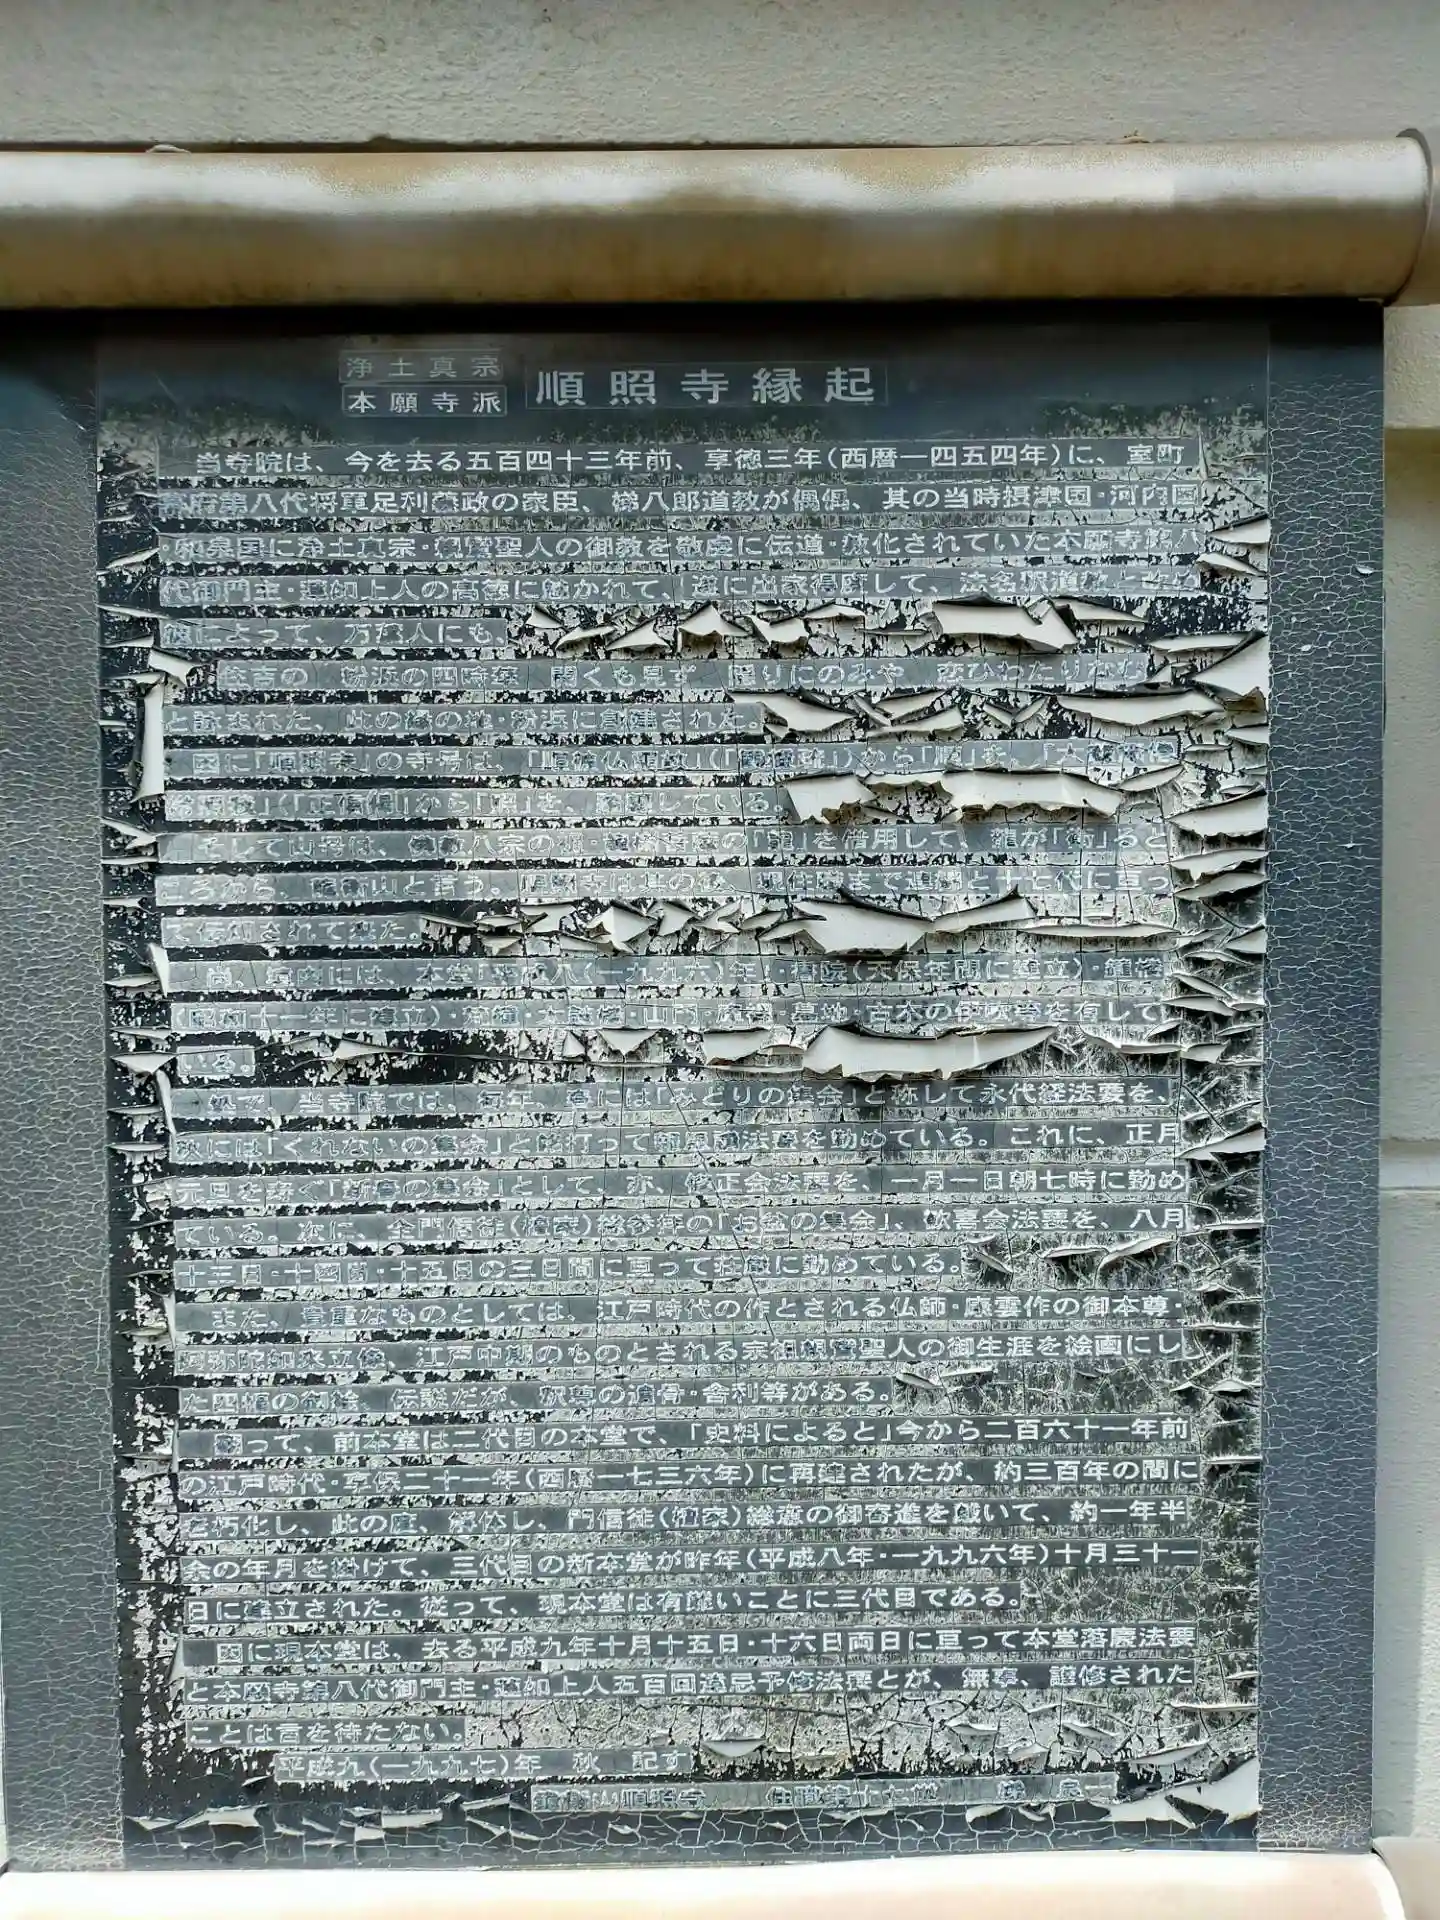 浄土真宗
本願寺派
順照寺縁起
当寺院は、今を去る五百四十三年前、享徳三年(西暦一四五四年)に、室町
幕府第八代将軍足利義政の家臣、 八郎道教が偶偶、其の当時摂津国・河内国
・和泉国に浄土真宗・親鸞聖人の御教を敬虔に伝道・教化されていた本願寺第八
代御門主・蓮如上人の高徳に魅かれて、遂に出家得度して、法名釈道教と
によって、万 人にも、
住吉の 粉浜の四時華 開くも見ず 隠りにのみや 恋ひわたりなむ
と詠まれた、此の縁の地・粉浜に創建された。
因に「順照寺」の寺号は、「 」から「順」を、「大
「正信偈」から「照」を、 している。
そして山号は、 八宗の祖・龍樹菩薩の「龍」を借用して、龍が「衛」ると
ころから、龍衛山と言う。順照寺は其の後、現住職まで連綿と十七代に亘っ
て伝承されて来た。
尚、境内には、本堂「平成八(一九九六)年」・書院(天保年間に建立)・鐘楼
(昭和十一年に建立)・ ・山門・ ・墓地・古木の 等を有して
いる。
処で、当寺院では、毎年、春には「みどりの集会」と称して永代経法要を、
秋には「くれないの集会」と銘打って報恩講法要を勤めている。これに、正月
元旦を寿ぐ「新春の集会」として、亦、修正会法要を、一月一日朝七時に勤め
ている。次に、全門信徒(檀家)総参拝の「お盆の集会」、歓喜会法要を、八月
十三日・十四日・十五日の三日間に亘って荘厳に勤めている。
また、貴重なものとしては、江戸時代の作とされる仏師・康雲作の御本尊・
阿弥陀如来立像、江戸中期のものとされる宗祖親鸞聖人の御生涯を絵画にし
た四幅の御絵 伝説だが、釈尊の遺骨・舎利等がある。
翻って、前本堂は二代目の本堂で、「史料によると」今から二百六十一年前
の江戸時代・享保二十一年(西暦一七三六年)に再建されたが、約三百年の間に
老朽化し、此の度、解体し、門信徒(檀家)総意の御寄進を戴いて、約一年半
余の年月を掛けて、三代目の新本堂が昨年(平成八年・一九九六年)十月三十一
日に建立された。従って、現本堂は有難いことに三代目である。
因に現本堂は、去る平成九年十月十五日・十六日両日に亘って本堂落慶法要
と本願寺第八代御門主・蓮如上人五百回遠忌予修法要とが、無事、謹修された
ことは言を待たない。
平成九(一九九七)年 秋 記す
龍衛山順照寺 住職第十七世